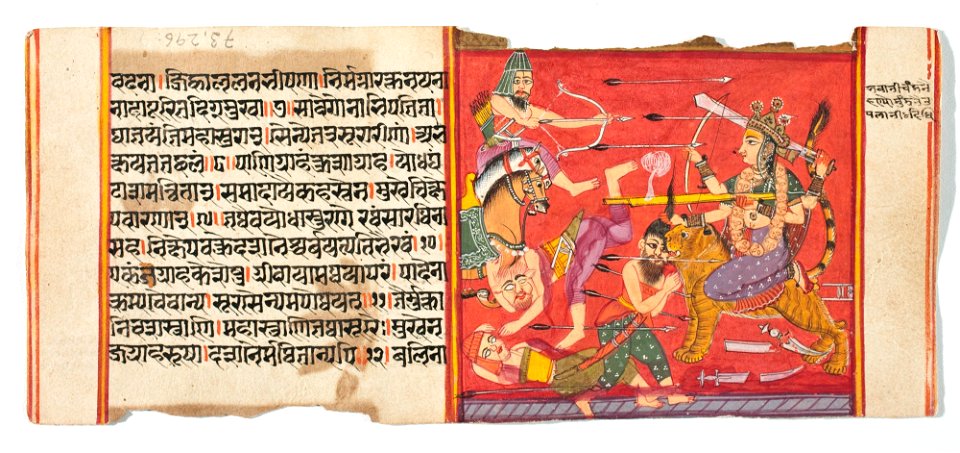 वदना। जिह्वाललनभीषणा। निमग्नारक्तनयना
नादापूरितदिङ्मुखा॥७॥ सा वेगेनाभिपतिता
घातयंती महासुरान्। सैन्ये तत्र सुरारीणा। मभ
क्षयत तद्बलं॥८॥ पार्ष्णिग्राहांकुशग्राह। योधघं
टासमन्वितान्। समादायैकहस्तेन। मुखे चिक्षे
प वारणान्।९। तथैव योधांस्तुरगै रथं सारथिना
सह। निक्षिप्य वक्त्रे दशनैश्चर्वयत्यतिभैरवं।१०।
एकं जग्राह केशेषु। ग्रीवायामथ चापरं। पादेना
क्रम्य चैवान्य। मुरसान्यमपोथयत्।११। तैर्मुक्ता
नि च शस्त्राणि। महास्त्राणि तथासुरैः। मुखेन
जग्राह रुषा। दशनैर्मथितान्यपि।१२। बलिनां
73.296